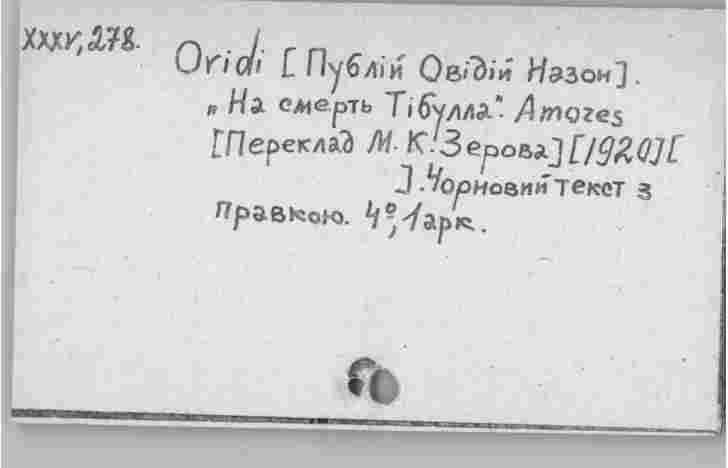 XXXV, 278.
Oridi [Публій Овідій Назон].
„На смерть Тібулла". Amores
[Переклад М. К. Зерова] [1920] [
]. Чорновий текст з
правкою. 4º, 1 арк.